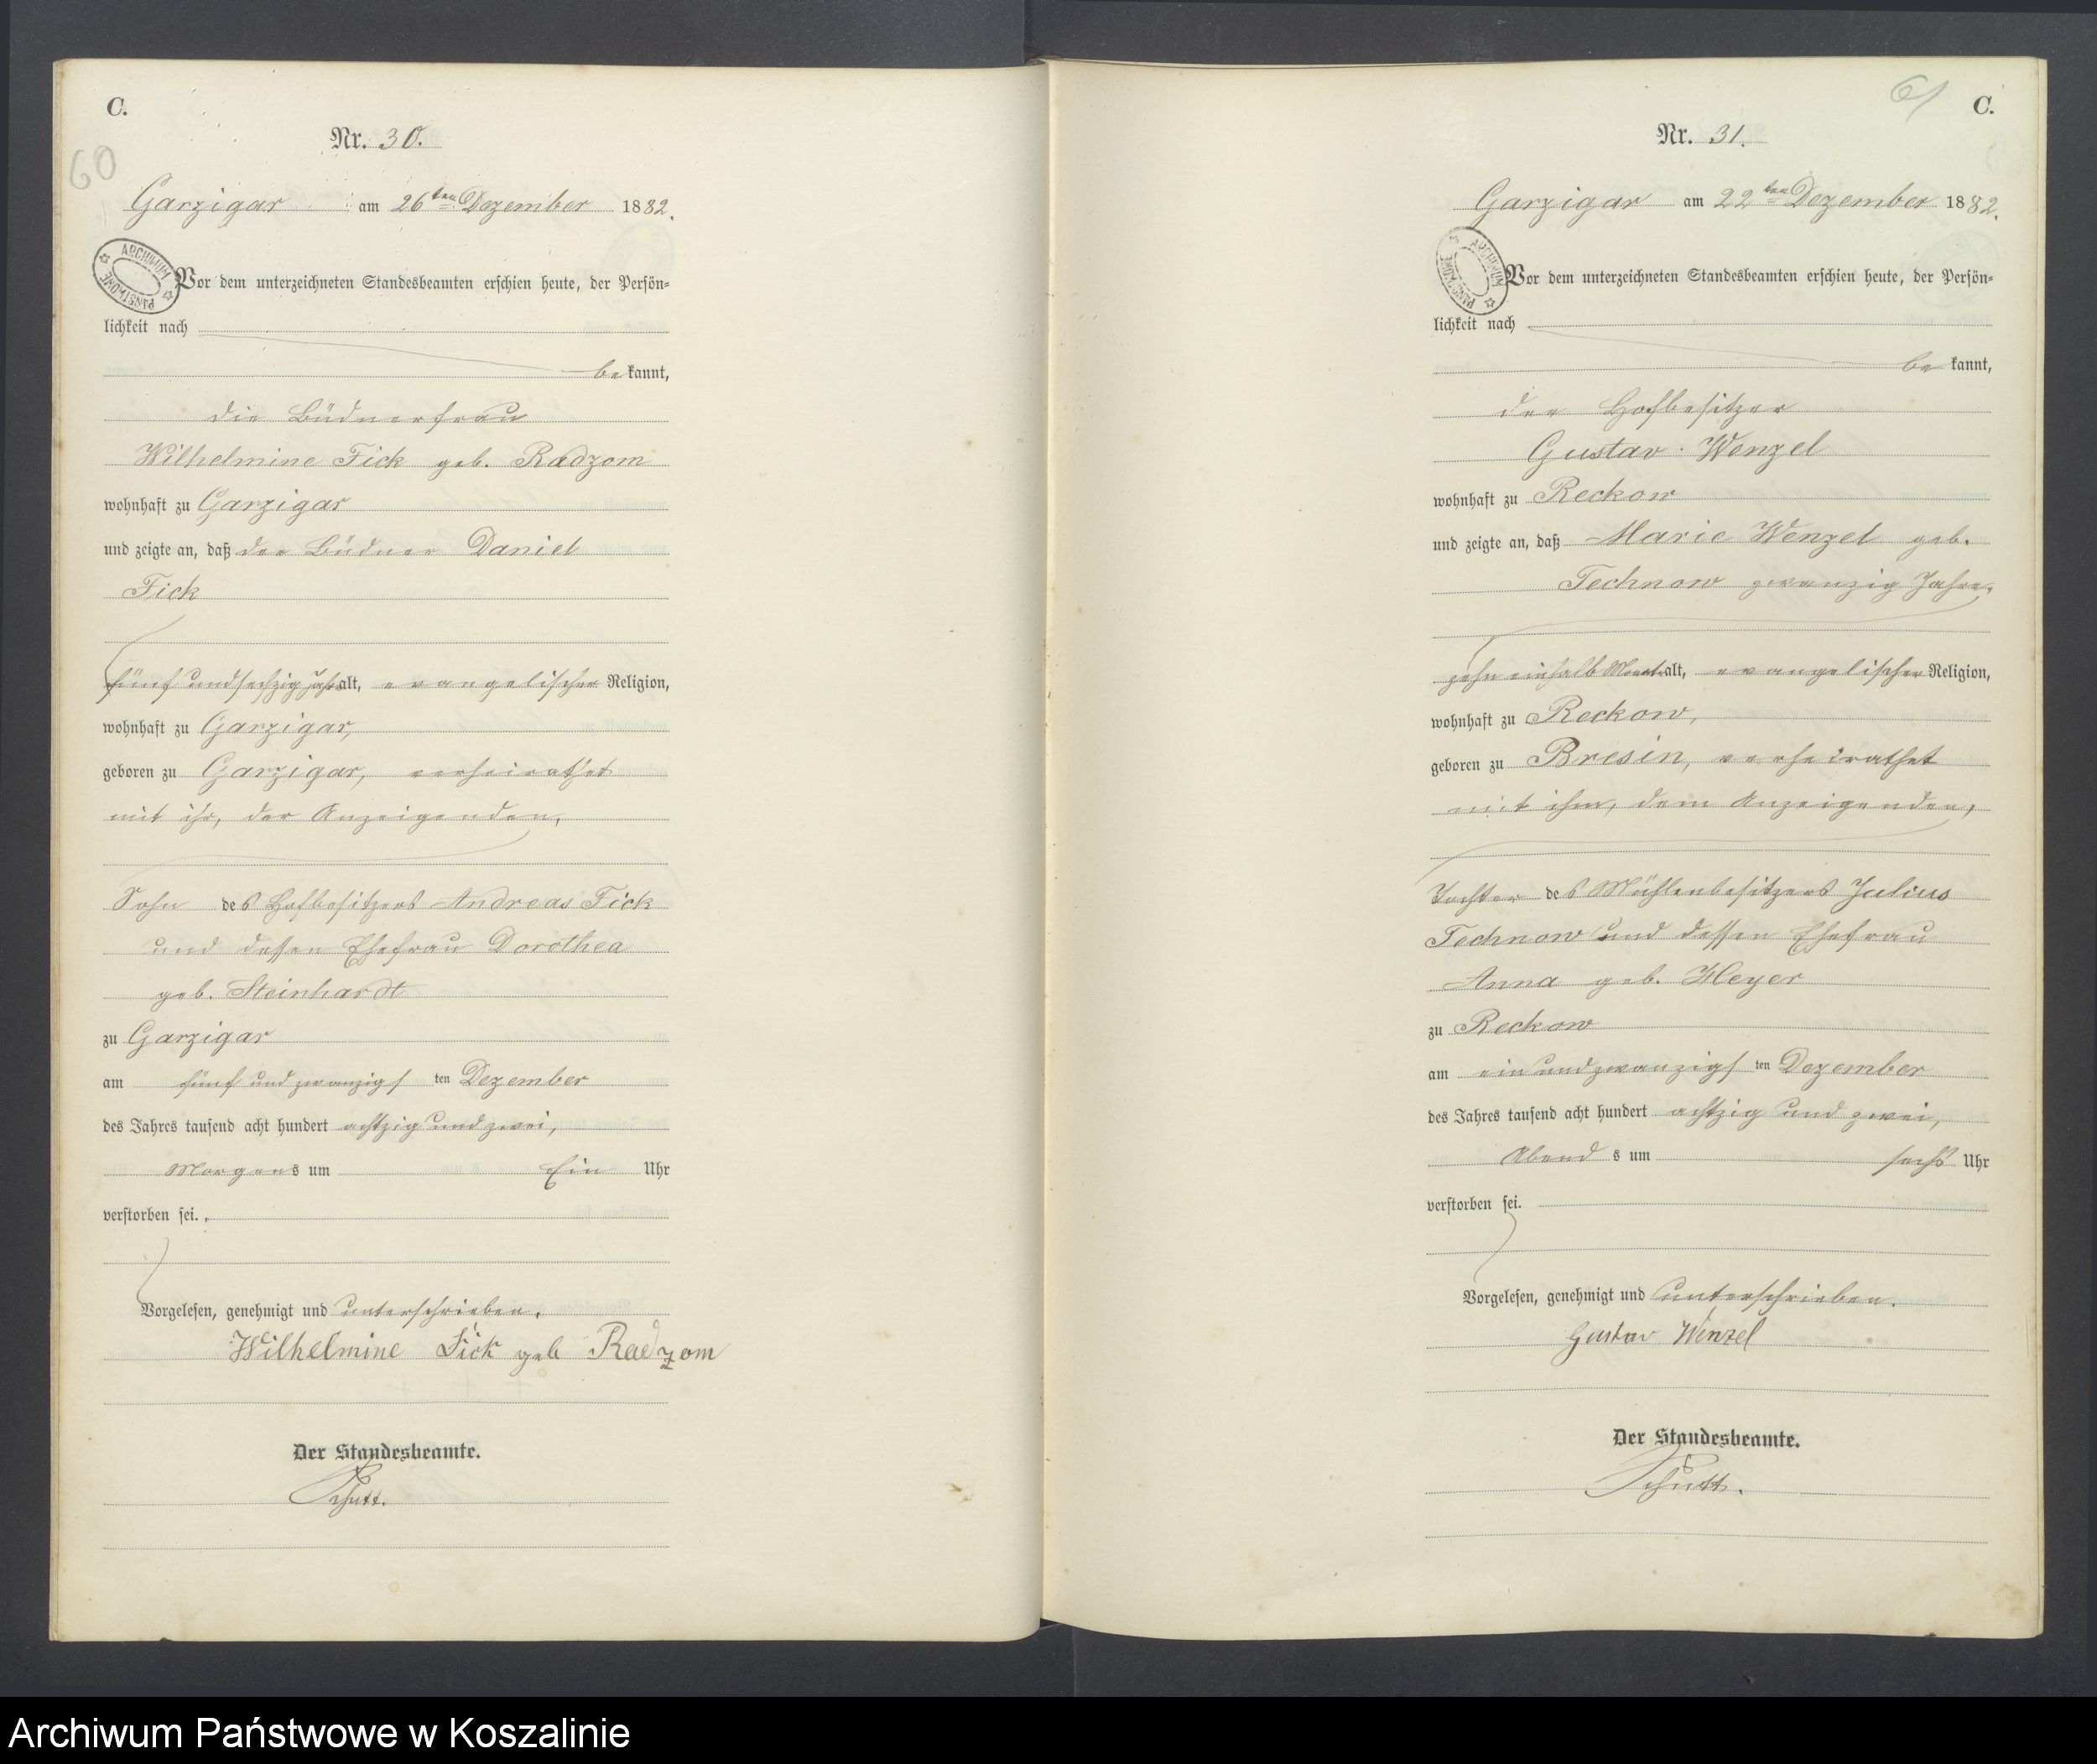 C.
60
Nr. 30.
Garzigar am 26ten Dezember 1882.
ARCHIWUM PAŃSTWOWE
Vor dem unterzeichneten Standesbeamten erschien heute, der Persön=
lichkeit nach
bekannt,
die Büdnerfrau
Wilhelmine Fick geb. Radzom
wohnhaft zu Garzigar
und zeigte an, daß der Büdner Daniel
Fick
fünf und sechzig Jahre alt, evangelischer Religion,
wohnhaft zu Garzigar,
geboren zu Garzigar, verheirathet
mit ihr, der Anzeigenden,
Sohn des Hofbesitzers Andreas Fick
und dessen Ehefrau Dorothea
geb. Steinhardt
zu Garzigar
am fünf und zwanzigsten Dezember
des Jahres tausend acht hundert achtzig und zwei,
Morgens um Ein Uhr
verstorben sei.
Vorgelesen, genehmigt und unterschrieben.
Wilhelmine Fick geb Radzom
Der Standesbeamte.
61
C.
Nr. 31.
Garzigar am 22ten Dezember 1882.
ARCHIWUM PAŃSTWOWE
Vor dem unterzeichneten Standesbeamten erschien heute, der Persön=
lichkeit nach
bekannt,
der Hofbesitzer
Gustav Wenzel
wohnhaft zu Reckow
und zeigte an, daß Marie Wenzel geb.
Technow zwanzig Jahre,
zehn einhalb Monat alt, evangelischer Religion,
wohnhaft zu Reckow,
geboren zu Bresin, verheirathet
mit ihm, dem Anzeigenden,
Tochter des Mühlenbesitzers Julius
Technow und dessen Ehefrau
Anna geb. Heyer
zu Reckow
am ein und zwanzigsten Dezember
des Jahres tausend acht hundert achtzig und zwei,
Abends um sechs Uhr
verstorben sei.
Vorgelesen, genehmigt und unterschrieben.
Gustav Wenzel
Der Standesbeamte.
Archiwum Państwowe w Koszalinie